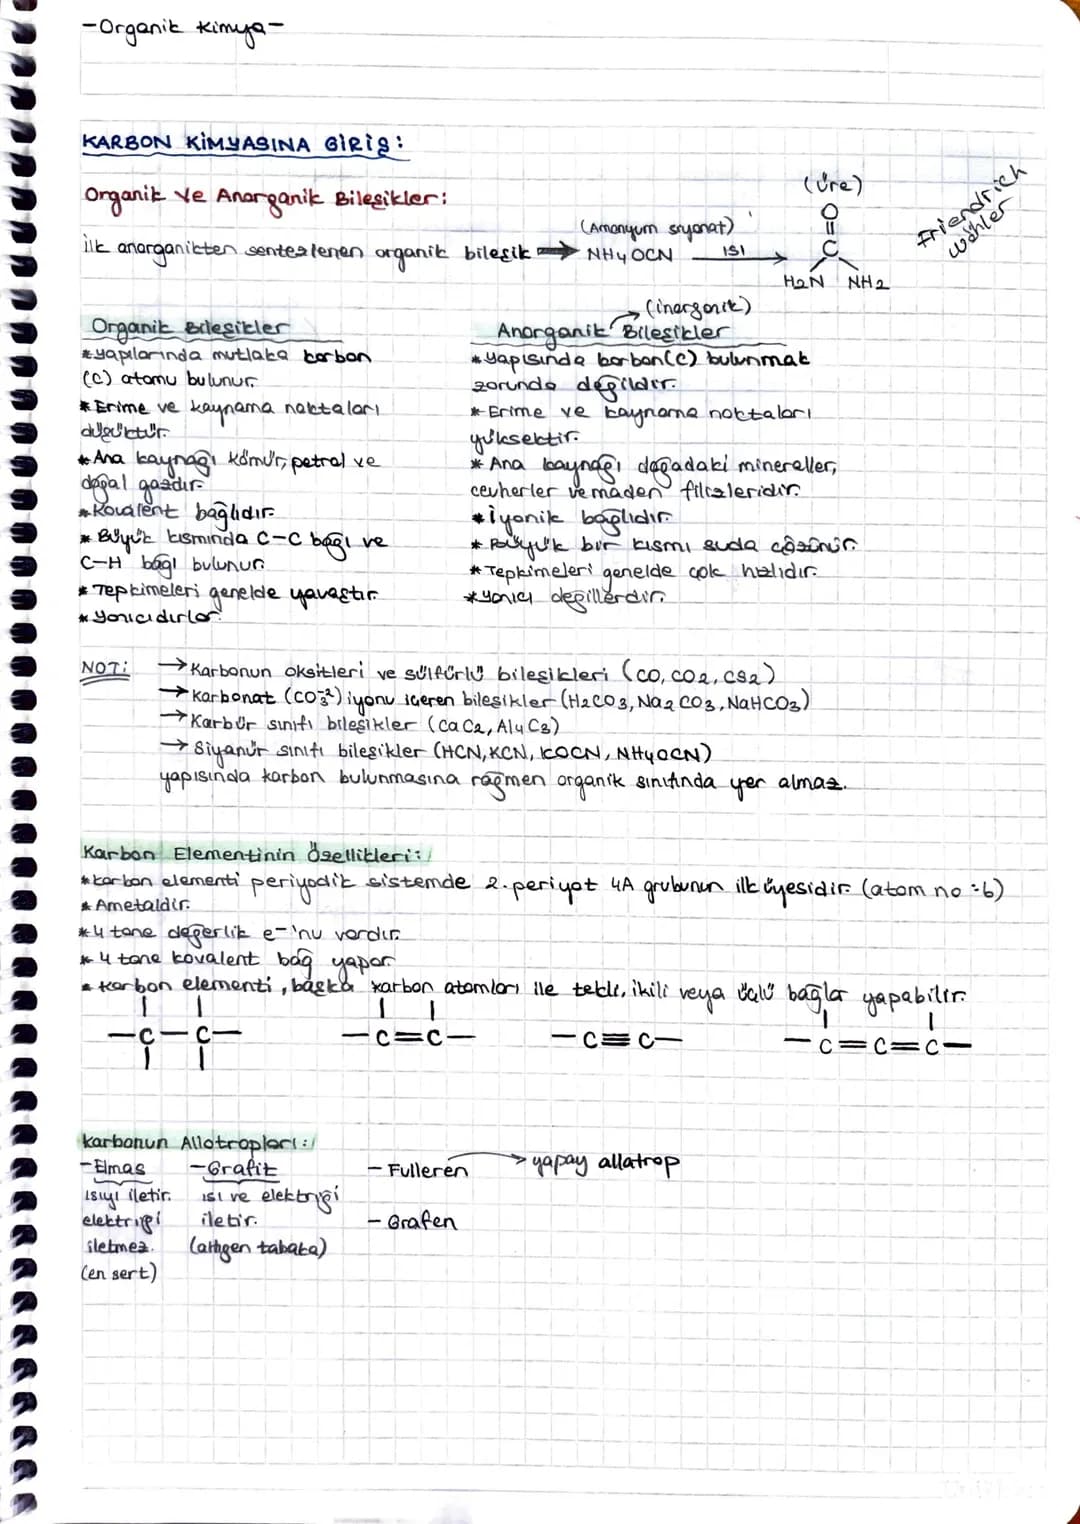 -Organik Kimya-
KARBON KİMYASINA GİRİŞ:
Organik Ve Anorganik Bileşikler:
İlk anorganikten sentezlenen organik bileşik → NH4OCN ısı →
(Amonyum siyanat)
(Üre)
O
C
H2N NH2
Friendrich
Wöhler
Organik Bileşikler
*Yapılarında mutlaka karbon
(C) atomu bulunur.
*Erime ve kaynama noktaları
düşüktür.
*Ana kaynağı kömür, petrol ve
doğal gazdır.
*Kovalent bağlıdır.
*Büyük kısmında C-C bağı ve
C-H bağı bulunur.
*Tepkimeleri genelde yavaştır.
*Yanıcıdırlar.
→ (inorganik)
Anorganik Bileşikler
*Yapısında karbon(C) bulunmak
zorunda değildir.
*Erime ve kaynama noktaları
yüksektir.
*Ana kaynağı doğadaki mineraller,
cevherler ve maden filizleridir.
*İyonik bağlıdır.
*Büyük bir kısmı suda çözünür.
*Tepkimeleri genelde çok hızlıdır.
*Yanıcı değillerdir.
NOT: → Karbonun oksitleri ve sülfürlü bileşikleri (CO, CO2, CS2)
→ Karbonat (CO3^-2) iyonu içeren bileşikler (H2CO3, Na2CO3, NaHCO3)
→ Karbür sınıfı bileşikler (CaC2, Al4C3)
→ Siyanür sınıfı bileşikler (HCN, KCN, KOCN, NH4OCN)
yapısında karbon bulunmasına rağmen organik sınıfında yer almaz.
Karbon Elementinin Özellikleri:
*Karbon elementi periyodik sistemde 2. periyot 4A grubunun ilk üyesidir. (atom no = 6)
*Ametaldir.
*4 tane değerlik e-'nu vardır.
*4 tane kovalent bağ yapar.
*Karbon elementi, başka karbon atomları ile tekli, ikili veya üçlü bağlar yapabilir.
-C-C- -C=C- -C≡C- -C=C=C-
Karbonun Allotropları:
-Elmas
ısıyı iletir.
elektriği
iletmez.
(en sert)
-Grafit
ısı ve elektriği
iletir.
(altıgen tabaka)
-Fulleren → yapay allatrop
-Grafen